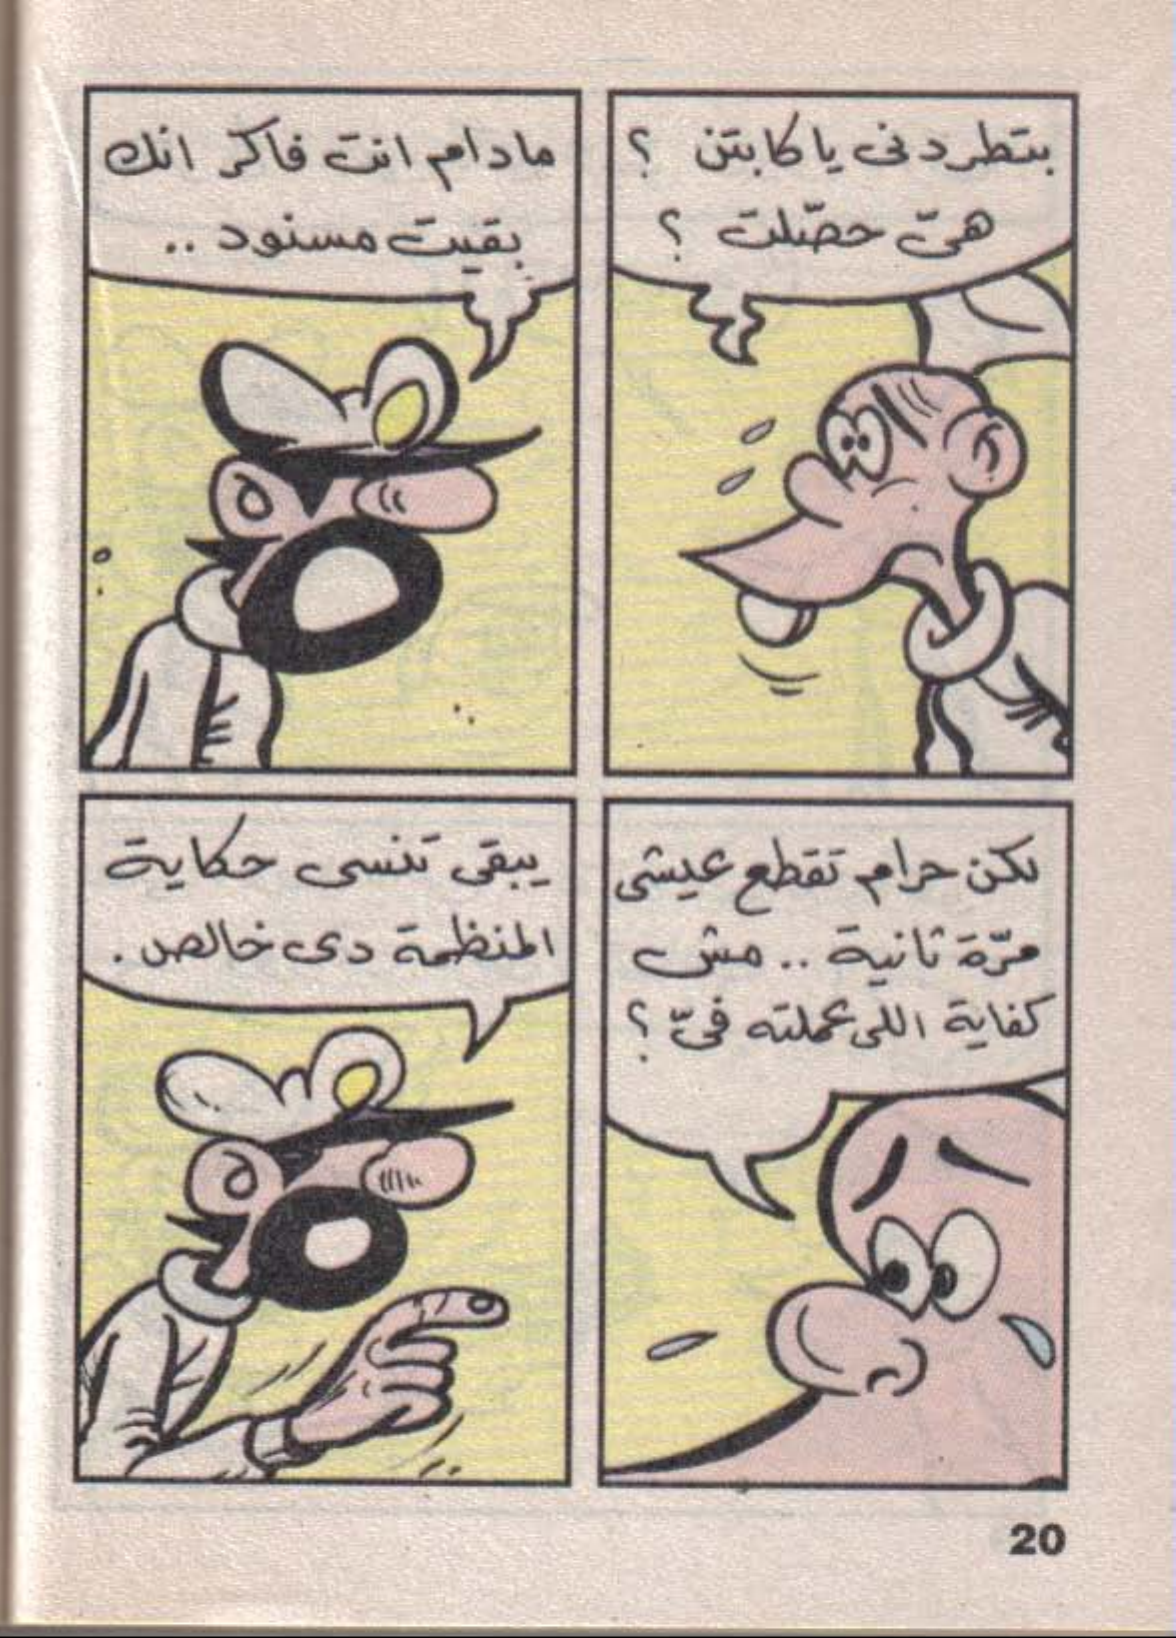 بتطردنى يا كابتن ؟
هىّ حصّلت ؟
مادام انت فاكر انك
بقيت مسنود ..
لكن حرام تقطع عيشى
مرّة ثانية .. مش
كفاية اللى عملته فىّ ؟
يبقى تنسى حكاية
المنظمة دى خالص .
20